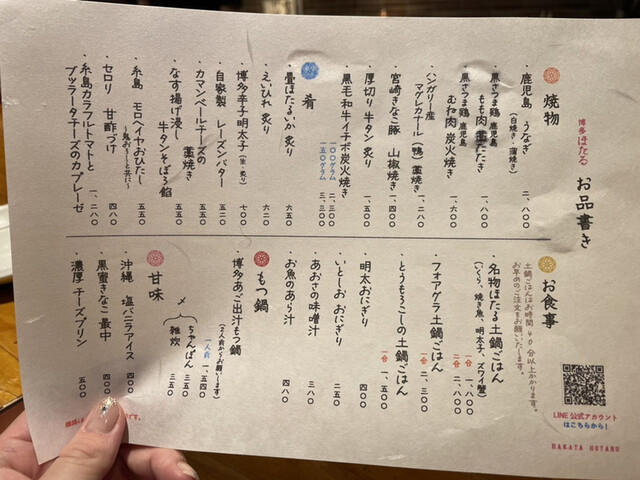 博多ほたる お品書き
焼物
鹿児島 うなぎ
(白焼き・蒲焼き) 二、八〇〇
・黒さつま鶏 鹿児島
もも肉 藁たたき 一、八〇〇
・黒さつま鶏 鹿児島
むね肉 炭火焼き 一、六〇〇
・ハンガリー産
マグレカナール(鴨) 藁焼き 一、二八〇
・宮崎きなこ豚 山椒焼き 一、四〇〇
・厚切り 牛タン 炙り 一、五〇〇
・黒毛和牛イチボ 炭火焼き
一〇〇グラム 二、三〇〇
一五〇グラム 三、三〇〇
肴
・畳ほたるいか 炙り 六五〇
・えいひれ 炙り 六二〇
・博多辛子明太子(生・炙り) 七〇〇
・自家製 レーズンバター 五二〇
・カマンベールチーズの
藁焼き 五五〇
・なす揚げ浸し
牛タンそぼろ餡 五五〇
・糸島 モロヘイヤおひたし 五五〇
・セロリ 甘酢づけ 四八〇
・糸島カラフルトマトと
ブッラータチーズのカプレーゼ 一、二八〇
お食事
土鍋ごはんはお時間40分以上かかります。
お早めのご注文をお願いいたします。
・名物ほたる土鍋ごはん
(いくら、焼き魚、明太子、ズワイ蟹)
一合 一、八〇〇
二合 二、八〇〇
・フォアグラ土鍋ごはん
一合 二、三〇〇
・とうもろこしの土鍋ごはん
一合 一、五〇〇
・明太おにぎり 三五〇
・いとしお おにぎり 二五〇
・あおさの味噌汁 三八〇
・お魚のあら汁 四八〇
もつ鍋
・博多あご出汁もつ鍋
(2人前からお願いします)
一人前 一、五四〇
〆
ちゃんぽん 三五〇
雑炊 三五〇
甘味
・沖縄 塩バニラアイス 四〇〇
・黒蜜きなこ最中 四〇〇
・濃厚 チーズプリン 五〇〇
LINE公式アカウント
はこちらから!
HAKATA HOTARU
です。